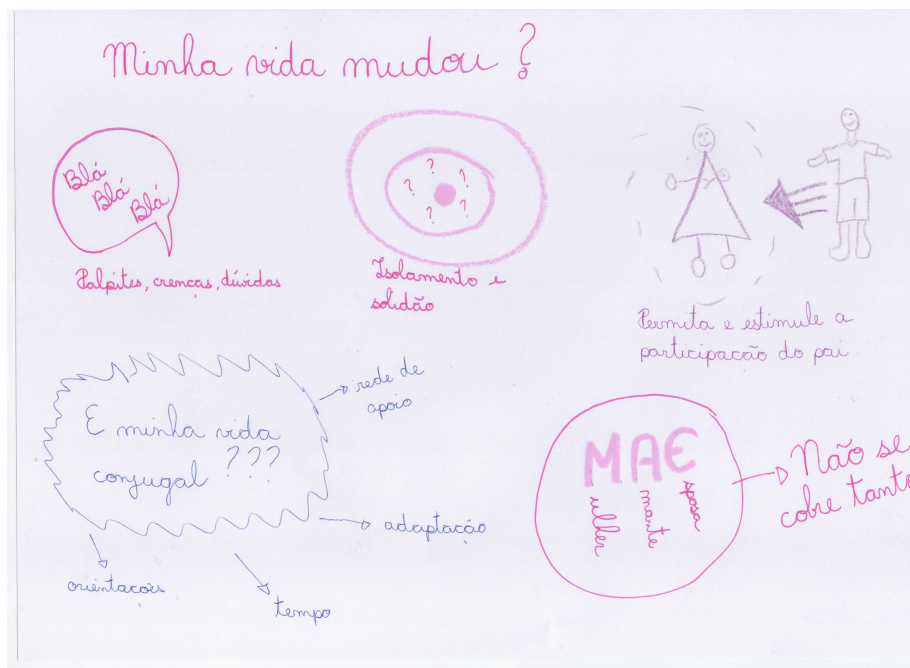 Minha vida mudou?
Blá
Blá
Blá
Palpites, crenças, dúvidas
? ? ? ? ? ?
Isolamento e
solidão
Permita e estimule a
participação do pai
E minha vida
conjugal ???
rede de
apoio
adaptação
tempo
orientações
MAE
ulher
mante
sposa
Não se
cobre tanto